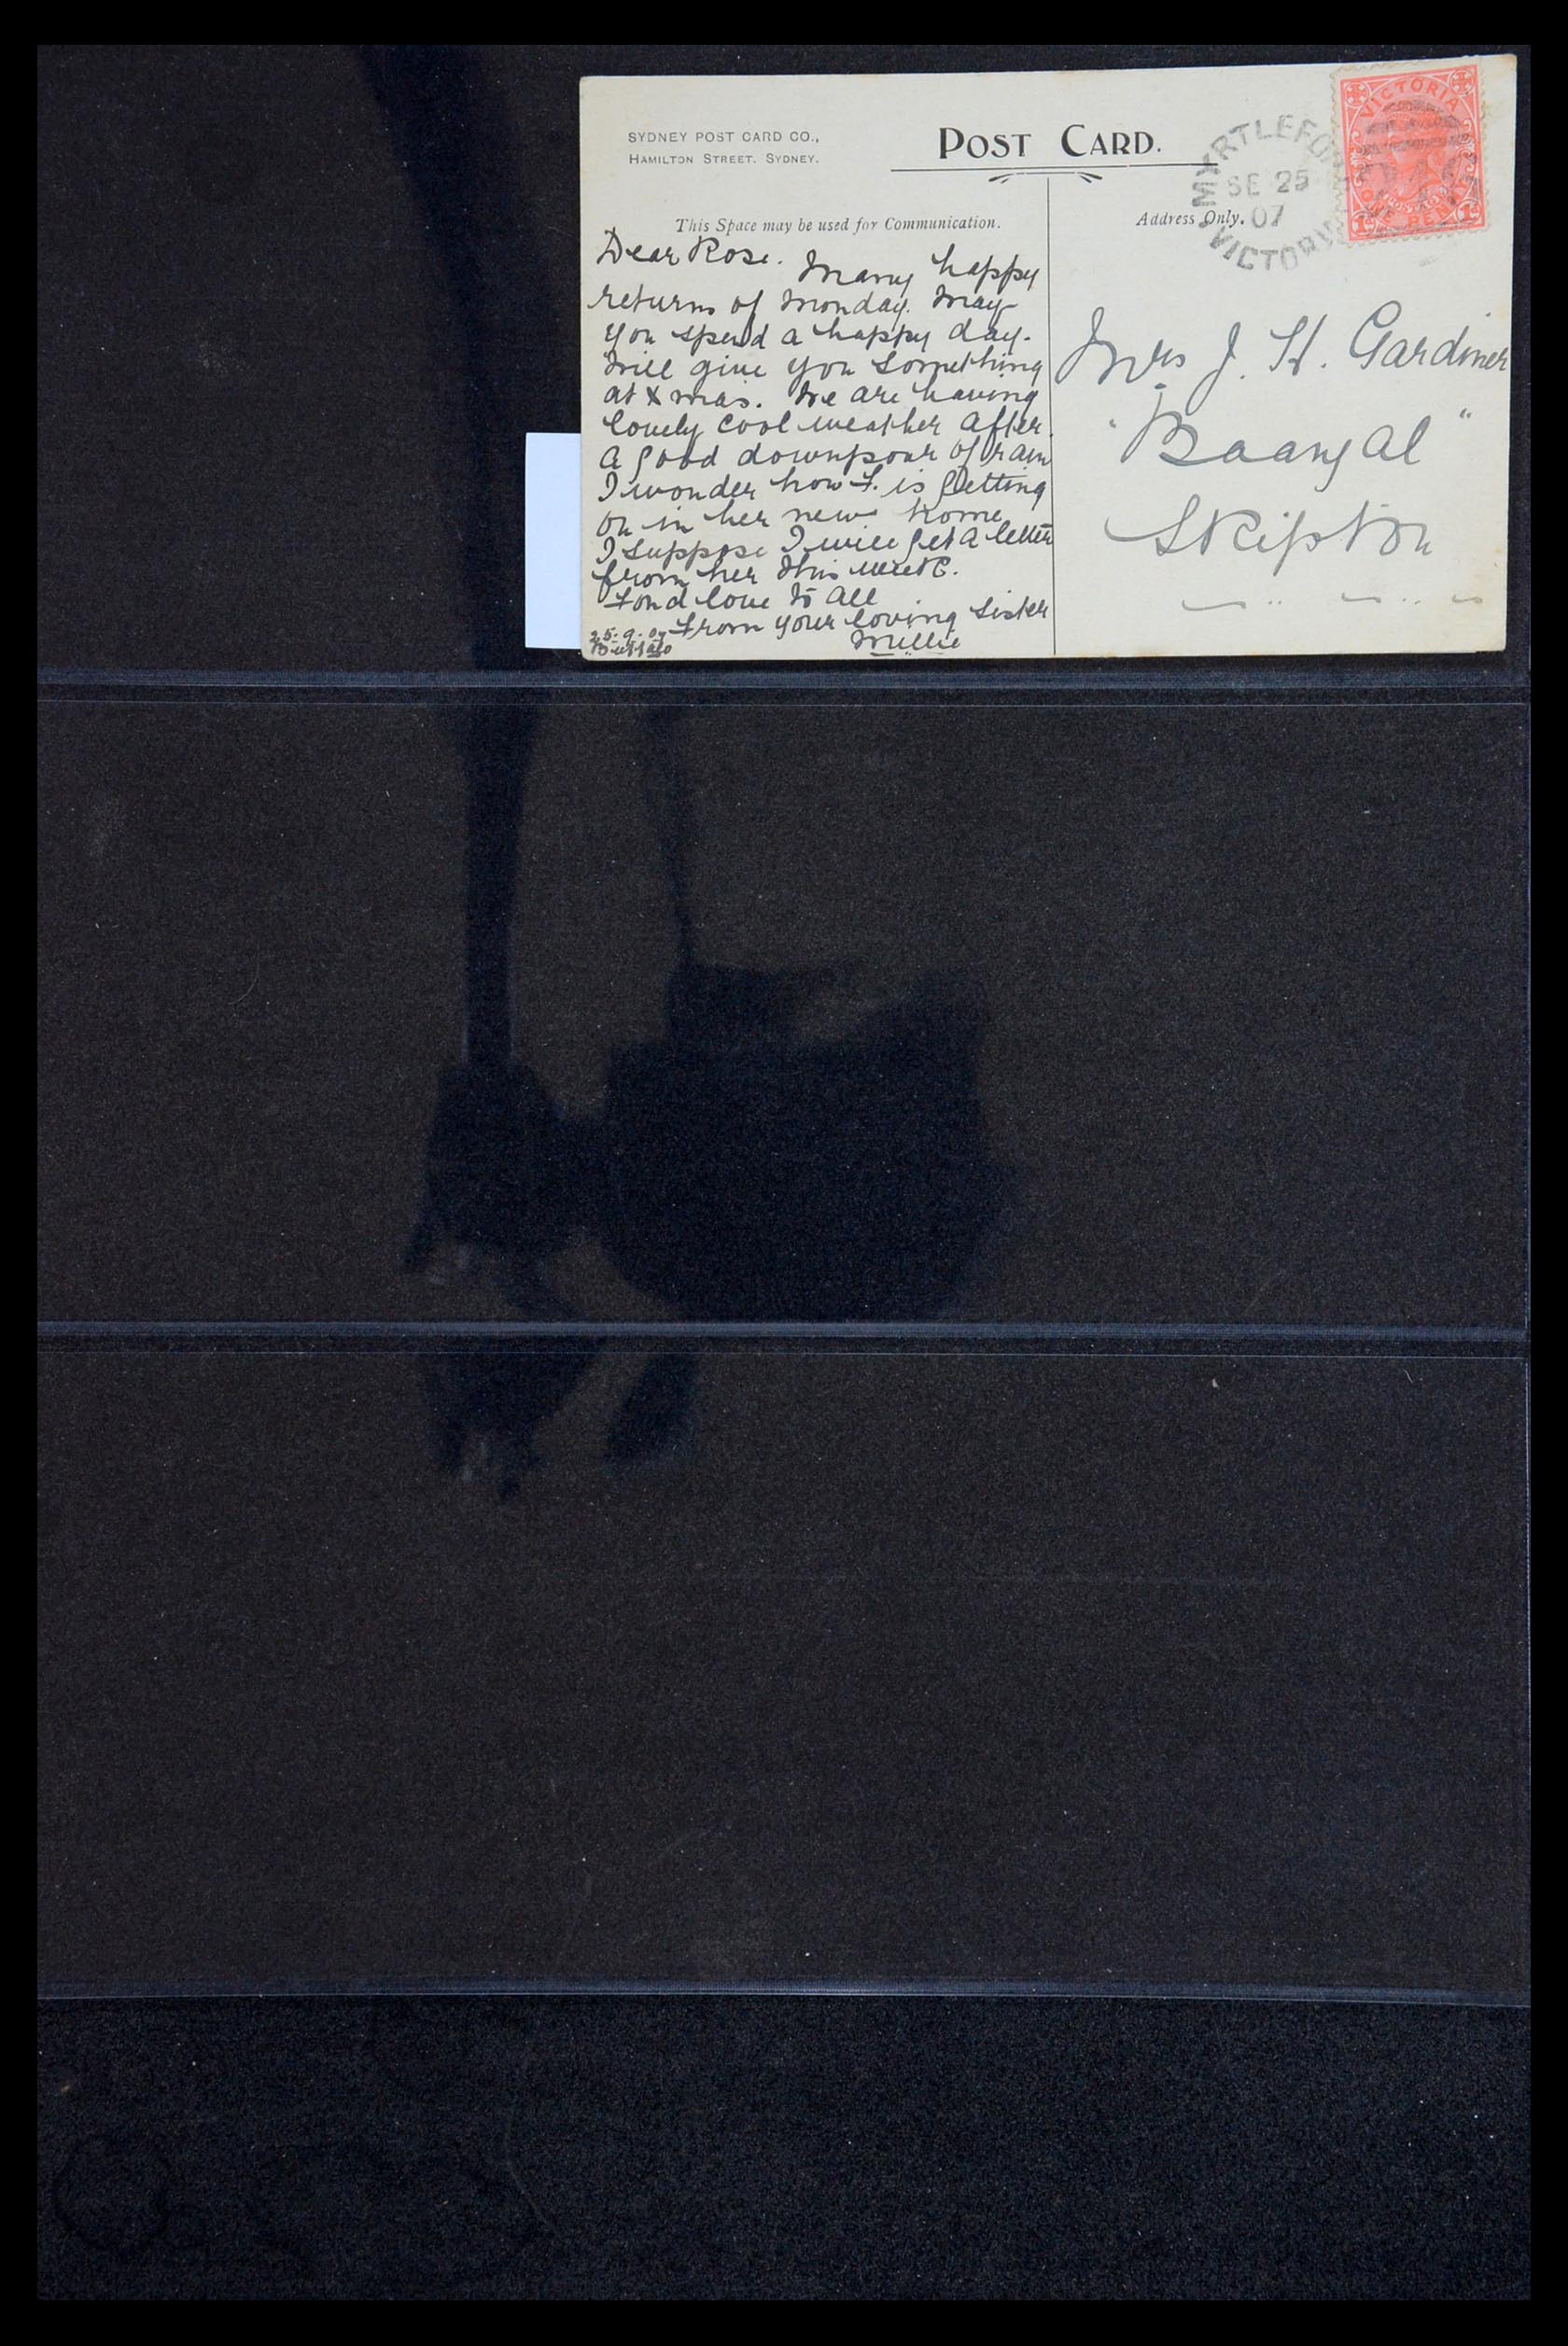 SYDNEY POST CARD CO.,
HAMILTON STREET. SYDNEY.
POST CARD.
This Space may be used for Communication.
Address Only.
MYRTLEFORD
SE 25
07
VICTORIA
VICTORIA
ONE PENNY
Dear Rose. Many happy
returns of Monday. May
you spend a happy day.
Will give you something
at Xmas. We are having
lovely cool weather after
a good downpour of rain
I wonder how F. is getting
on in her new home
I suppose I will get a letter
from her this week.
Fond love to all
From your loving sister
Millie
25.9.07
Buffalo
Mrs J. H. Gardiner
"Baangal"
Skipton